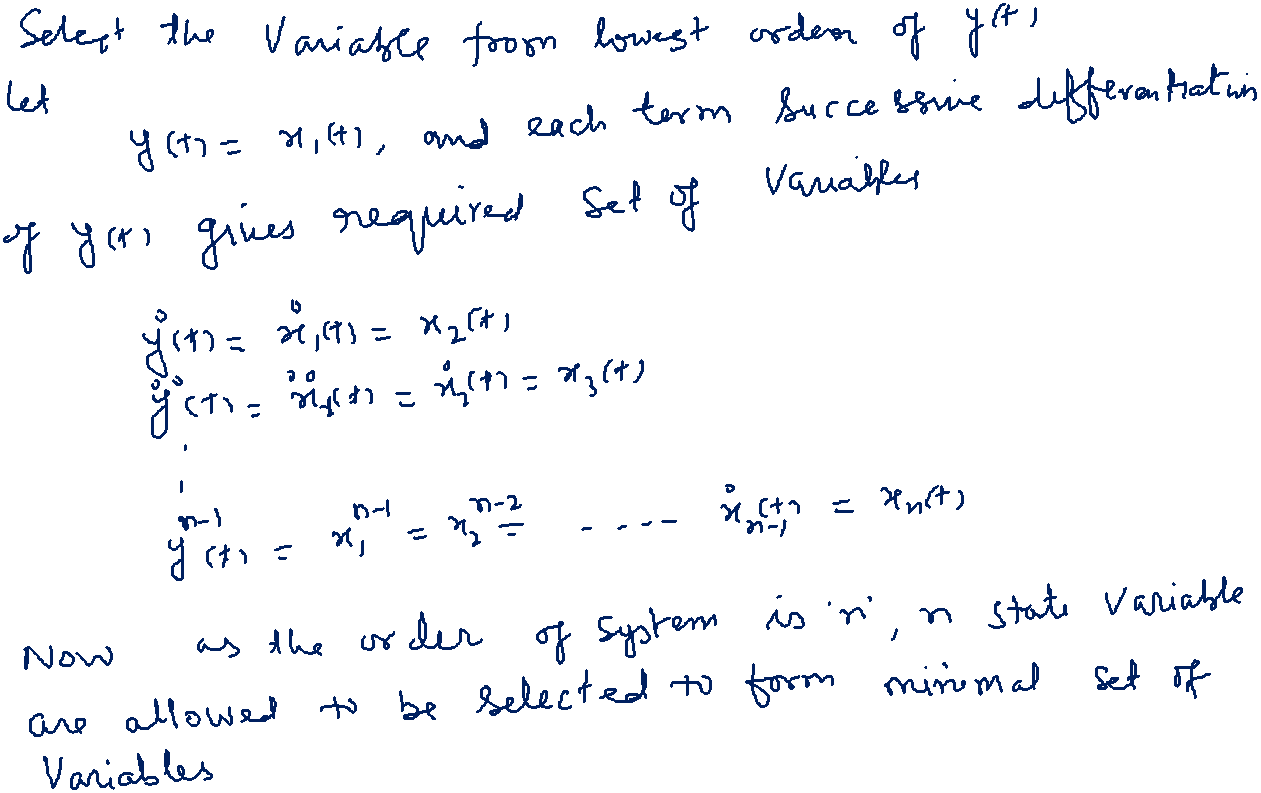 Select the Variable from lowest order of y(t)
Let
y(t) = x₁(t), and each term successive differentiation
of y(t) gives required set of Variables
ẏ(t) = ẋ₁(t) = x₂(t)
ÿ(t) = ẍ₁(t) = ẋ₂(t) = x₃(t)
yⁿ⁻¹(t) = x₁ⁿ⁻¹ = x₂ⁿ⁻² = .... ẋₙ₋₁(t) = xₙ(t)
Now as the order of system is 'n', n state Variable
are allowed to be selected to form minimal set of
Variables